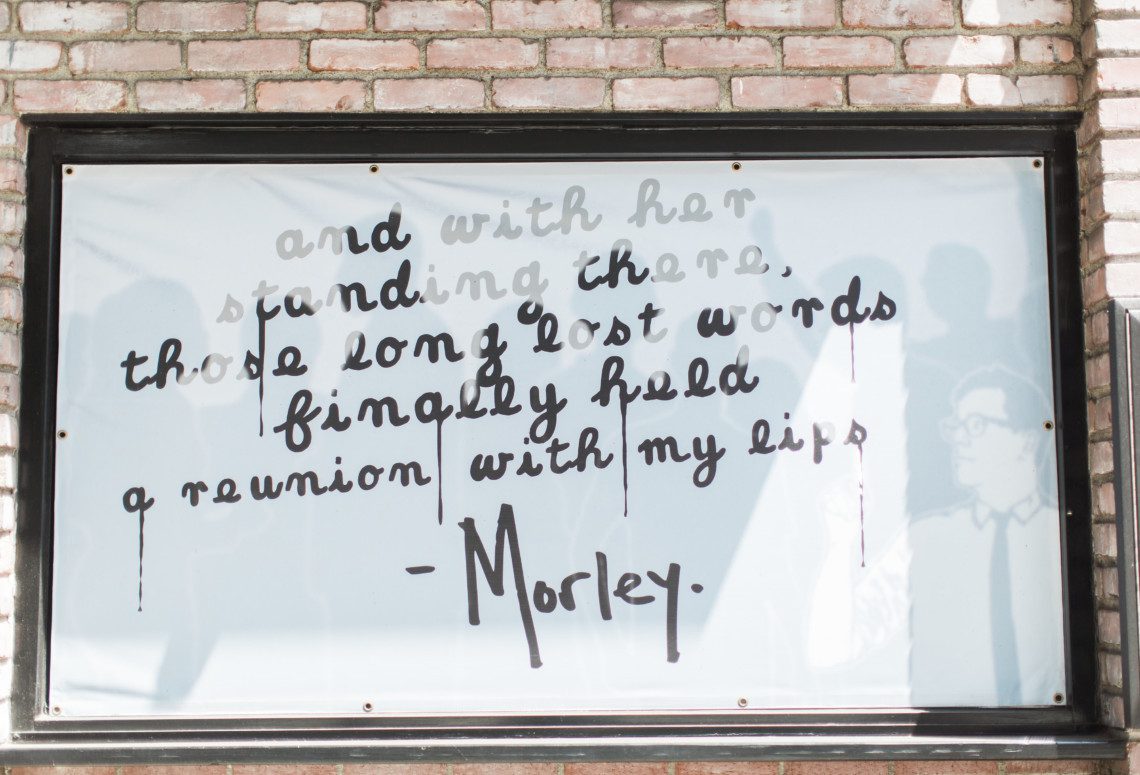 and with her
standing there,
those long lost words
finally held
a reunion with my lips
- Morley.